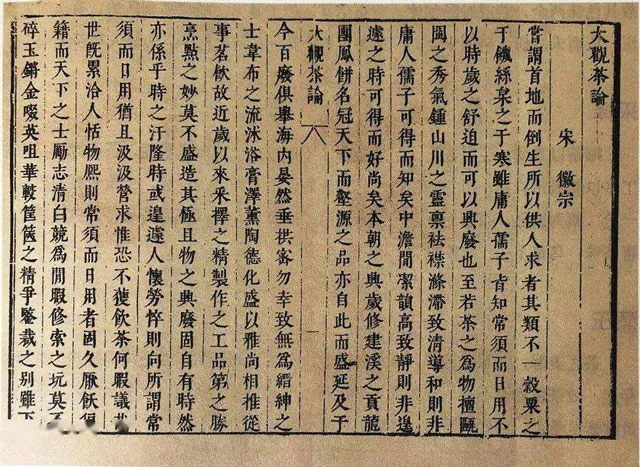 大觀茶論
宋 徽宗
嘗謂首地而倒生所以供人求者其類不一穀粟之
于饑絲枲之于寒雖庸人孺子皆知常須而日用不
以時歲之舒迫而可以興廢也至若茶之為物擅甌
閩之秀氣鍾山川之靈稟祛襟滌滯致清導和則非
庸人孺子可得而知矣中澹間潔韻高致靜則非遑
遽之時可得而好尚矣本朝之興歲修建溪之貢龍
團鳳餅名冠天下而壑源之品亦自此而盛延及于
大觀茶論 一
今百廢俱舉海內晏然垂拱密勿幸致無為縉紳之
士韋布之流沐浴膏澤薰陶德化盛以雅尚相推從
事茗飲故近歲以來采擇之精製作之工品第之勝
烹點之妙莫不盛造其極且物之興廢固自有時然
亦係乎時之汙隆時或遑遽人懷勞悴則向所謂常
須而日用猶且汲汲營求惟恐不獲飲茶何暇議
世旣累洽人恬物熙則常須而日用者固久厭飫
籍而天下之士勵志清白競為閒暇修索之玩莫
碎玉鏘金啜英咀華較筐篋之精爭鑒裁之別雖下